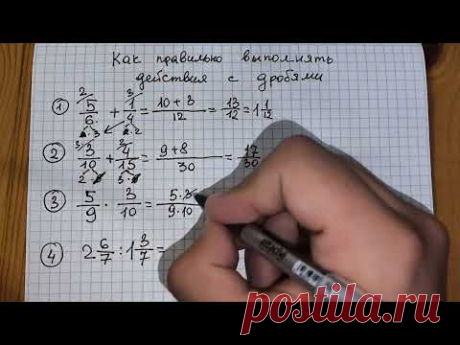 Как правильно выполнять
действия с дробями
① 5/6 + 1/4 = 10 + 3/12 = 13/12 = 1 1/12
② 3/10 + 4/15 = 9 + 8/30 = 17/30
③ 5/9 · 3/10 = 5·3/9·10
④ 2 6/7 : 1 3/7 =
postila.ru